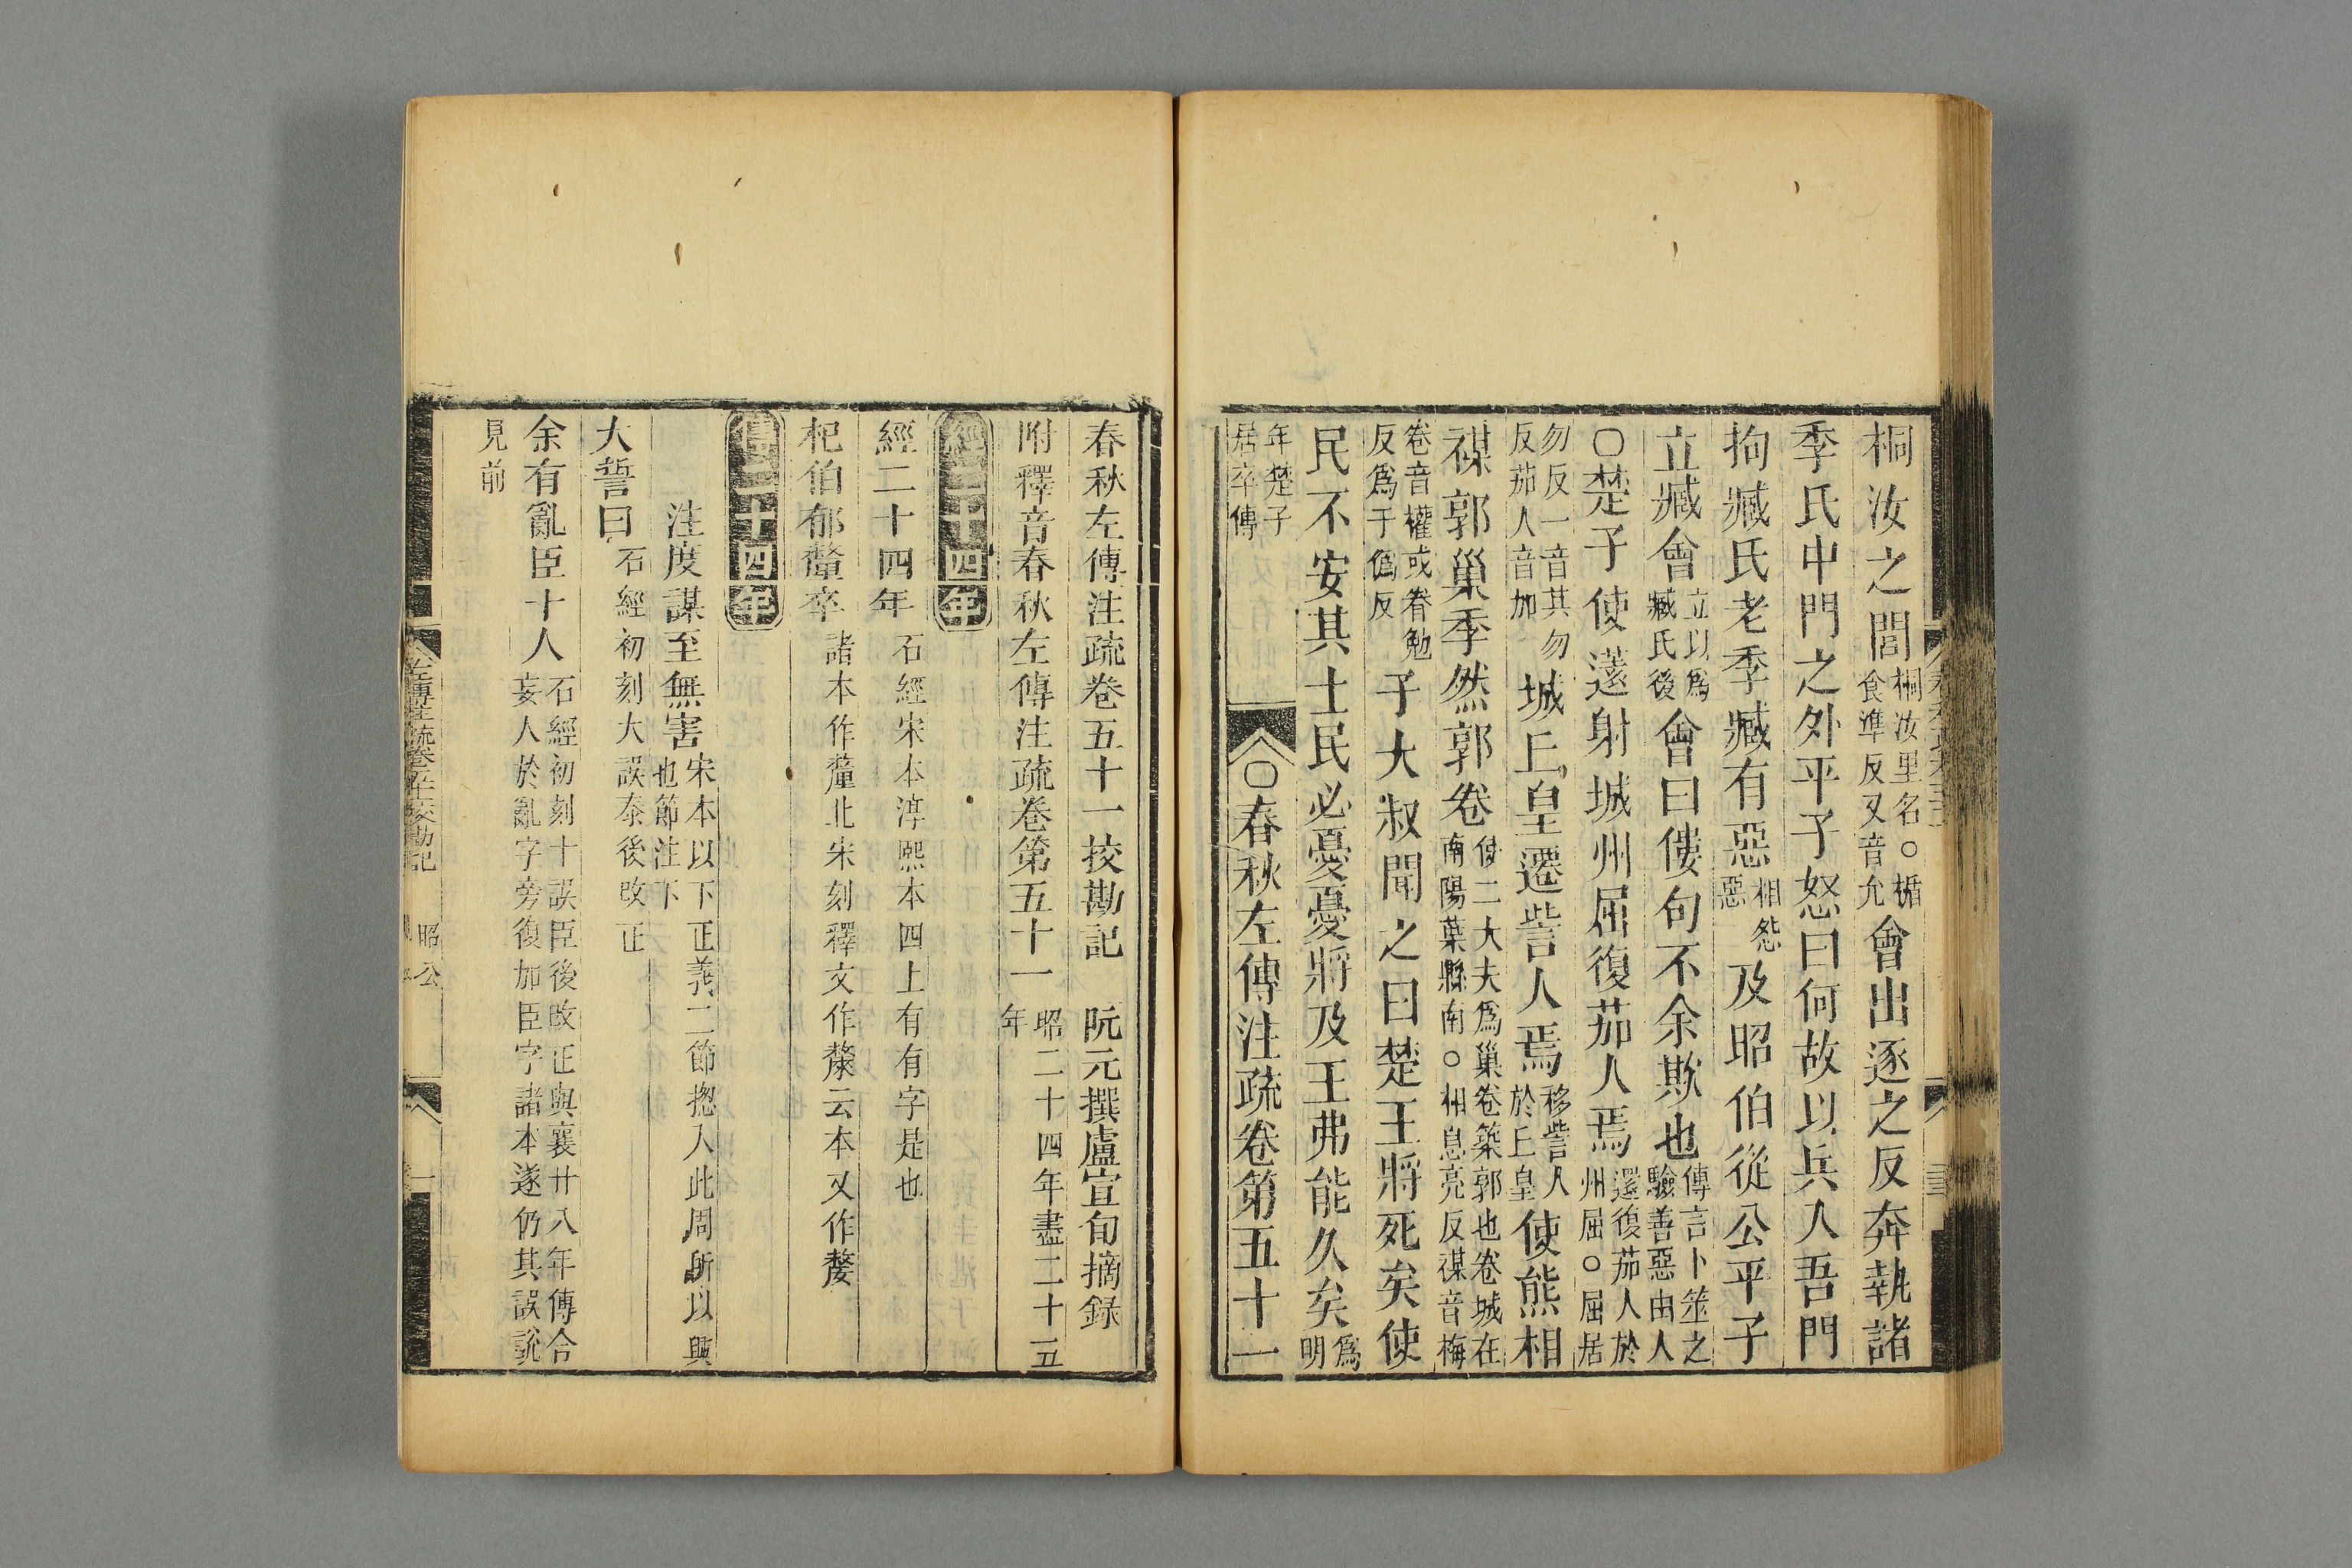 桐汝之閭桐汝里名○楯食準反又音允會出逐之反奔執諸
季氏中門之外平子怒曰何故以兵入吾門
拘臧氏老季臧有惡相怨惡及昭伯從公平子
立臧會立以爲臧氏後會曰僂句不余欺也傳言卜筮之驗善惡由人
○楚子使薳射城州屈復茄人焉還復茄人於州屈○屈居
勿反一音其勿反茄人音加城丘皇遷訾人焉移訾人於丘皇使熊相
禖郭巢季然郭卷使二大夫爲巢卷築郭也卷城在南陽葉縣南○相息亮反禖音梅
卷音權或眷勉反爲于僞反子大叔聞之曰楚王將死矣使
民不安其土民必憂憂將及王弗能久矣爲明
年楚子居卒傳○春秋左傳注疏卷第五十一
春秋左傳注疏卷五十一挍勘記 阮元撰盧宣旬摘録
附釋音春秋左傳注疏卷第五十一昭二十四年盡二十五年
經二十四年
經二十四年石經宋本淳熙本四上有有字是也
杞伯郁釐卒諸本作釐北宋刻釋文作斄云本又作嫠
傳二十四年
注度謀至無害宋本以下正義二節揔入此周所以興也節注下
大誓曰石經初刻大誤泰後改正
余有亂臣十人石經初刻十誤臣後改正與襄廿八年傳合妄人於亂字旁復加臣字諸本遂仍其誤説
見前
左傳注疏卷五十一挍勘記 昭公 一